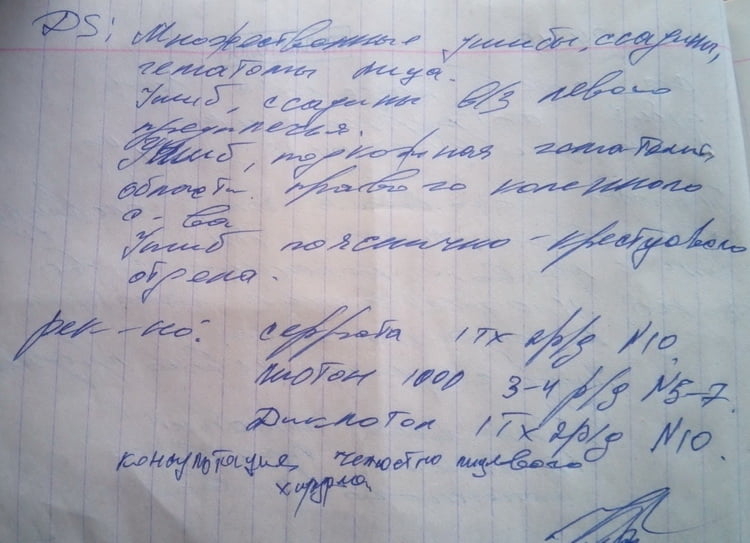 DS: Множественные ушибы, ссадины,
гематомы лица.
Ушиб, ссадины в/3 левого
предплечья.
Ушиб, подкожная гематома
области правого коленного
с-ва
Ушиб пояснично-крестцового
отдела.
рек-но: серрата 1т х 2р/д N10.
лиотон 1000 3-4 р/д N5-7.
1т х 2р/д N10.
консультация челюстно лицевого
хирурга